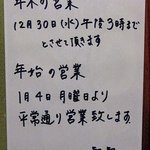 年末の営業
12月30日(水)午後3時まで
とさせて頂きます
年始の営業
1月4日月曜日より
平常通り営業致します